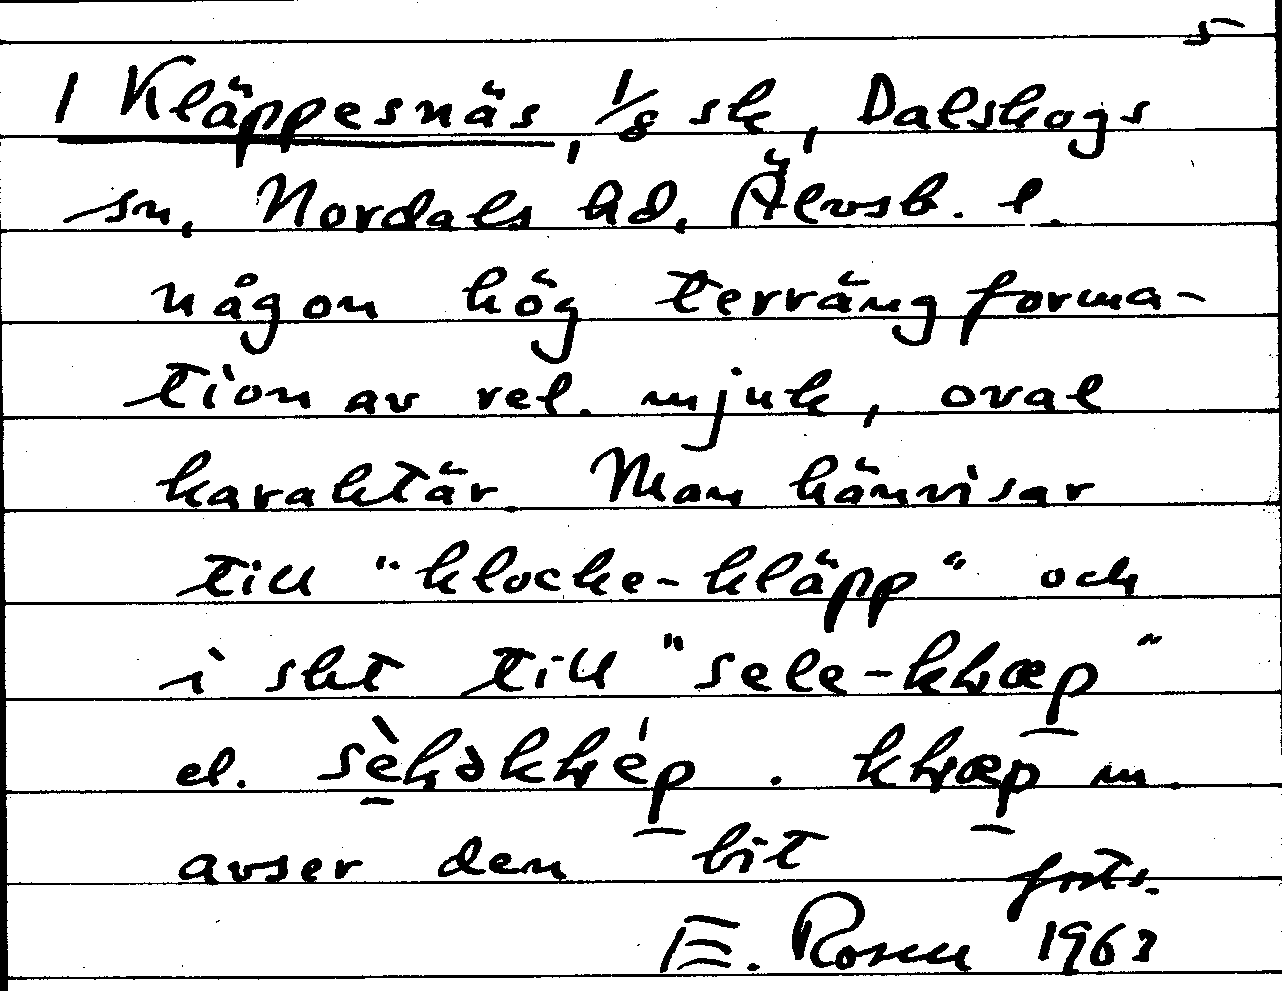 5
1 Kläppesnäs, 1/8 sk, Dalskogs
sn, Nordals hd, Älvsb. l.
någon hög terrängforma-
tion av rel. mjuk, oval
karaktär. Man hänvisar
till "klocke-kläpp" och
i skt till "sele-
el. . m.
avser den bit forts.
E. Rosen 1963